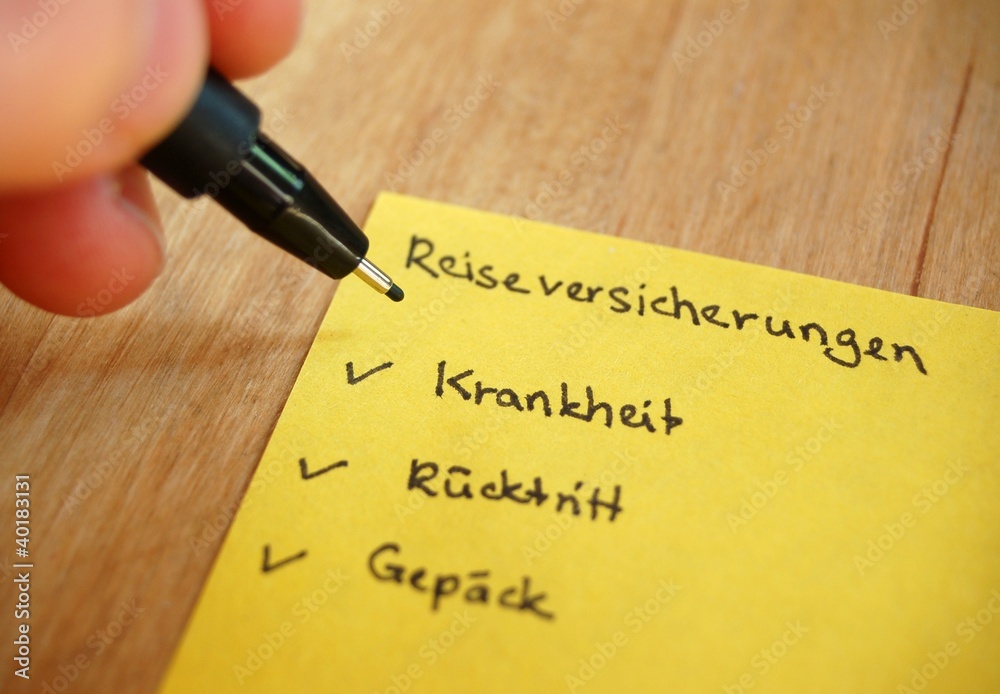 Reiseversicherungen
✓ Krankheit
✓ Rücktritt
✓ Gepäck
Adobe Stock | #40183131